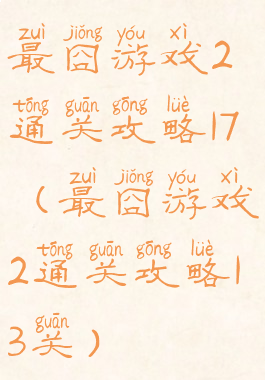 zuì jiǒng yóu xì
最囧游戏2
tōng guān gōng lüè
通关攻略17
zuì jiǒng yóu xì
（最囧游戏
tōng guān gōng lüè
2通关攻略1
guān
3关）